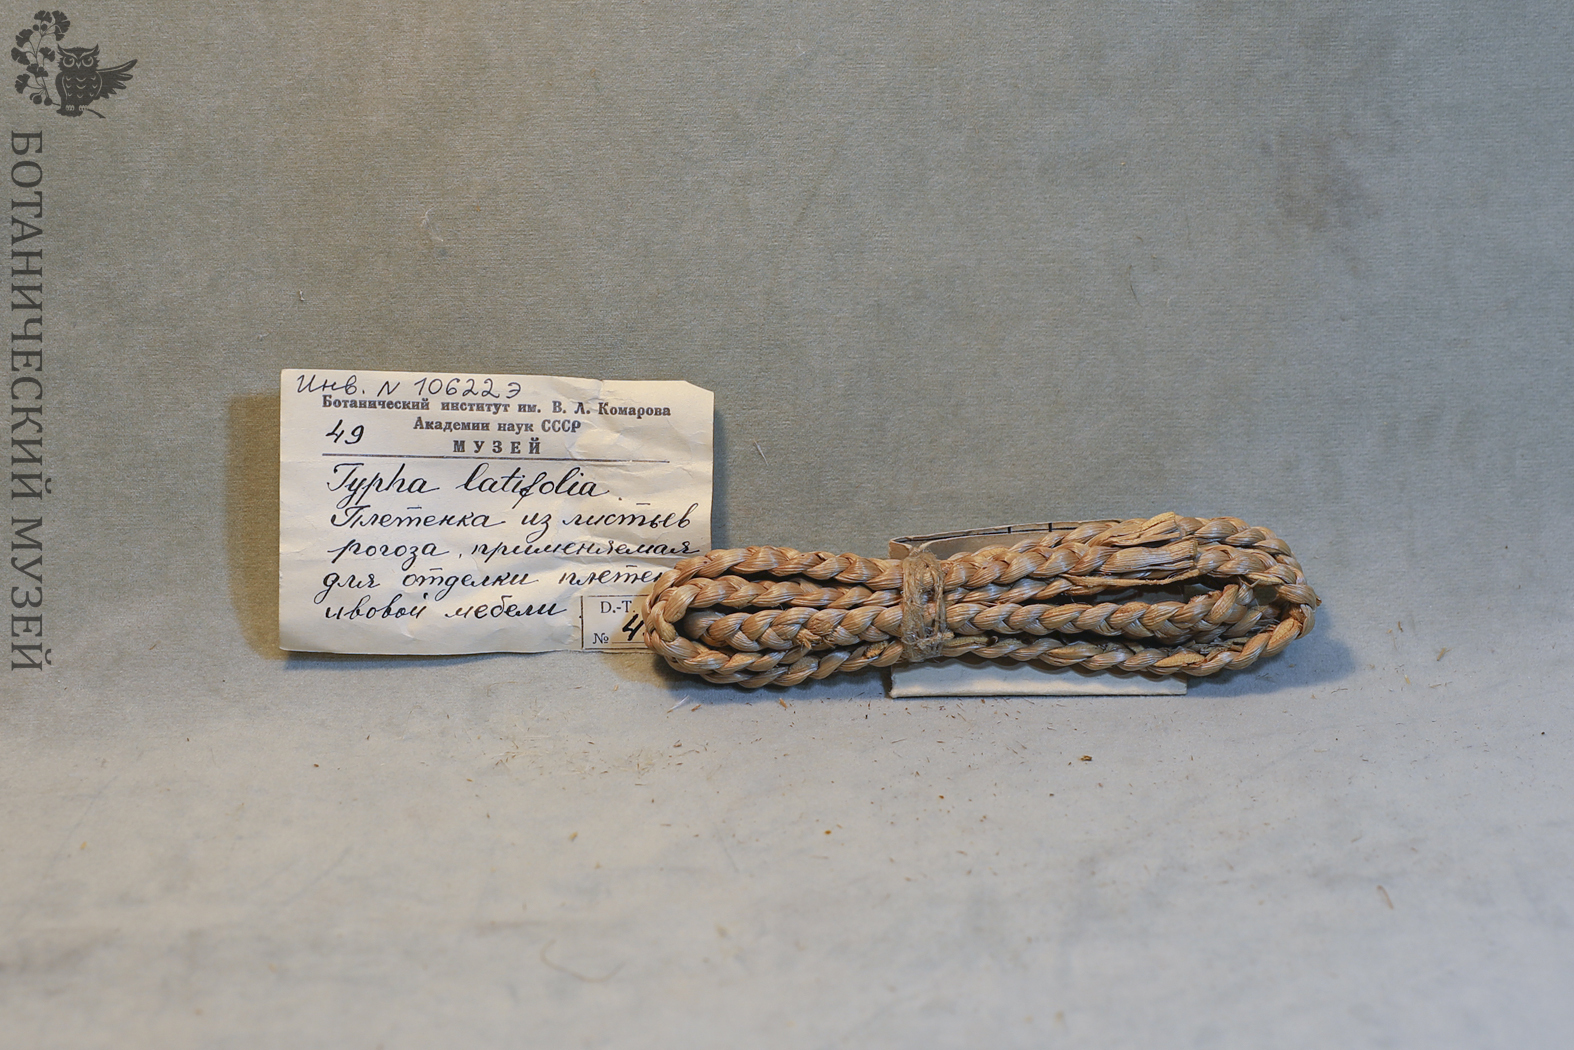 БОТАНИЧЕСКИЙ МУЗЕЙ
Инв. N 106223
Ботанический институт им. В. Л. Комарова
Академии наук СССР
49
МУЗЕЙ
Typha latifolia.
Плетенка из листьев
рогоза, применяемая
для отделки
ивовой мебели
D.-T.
№ 4